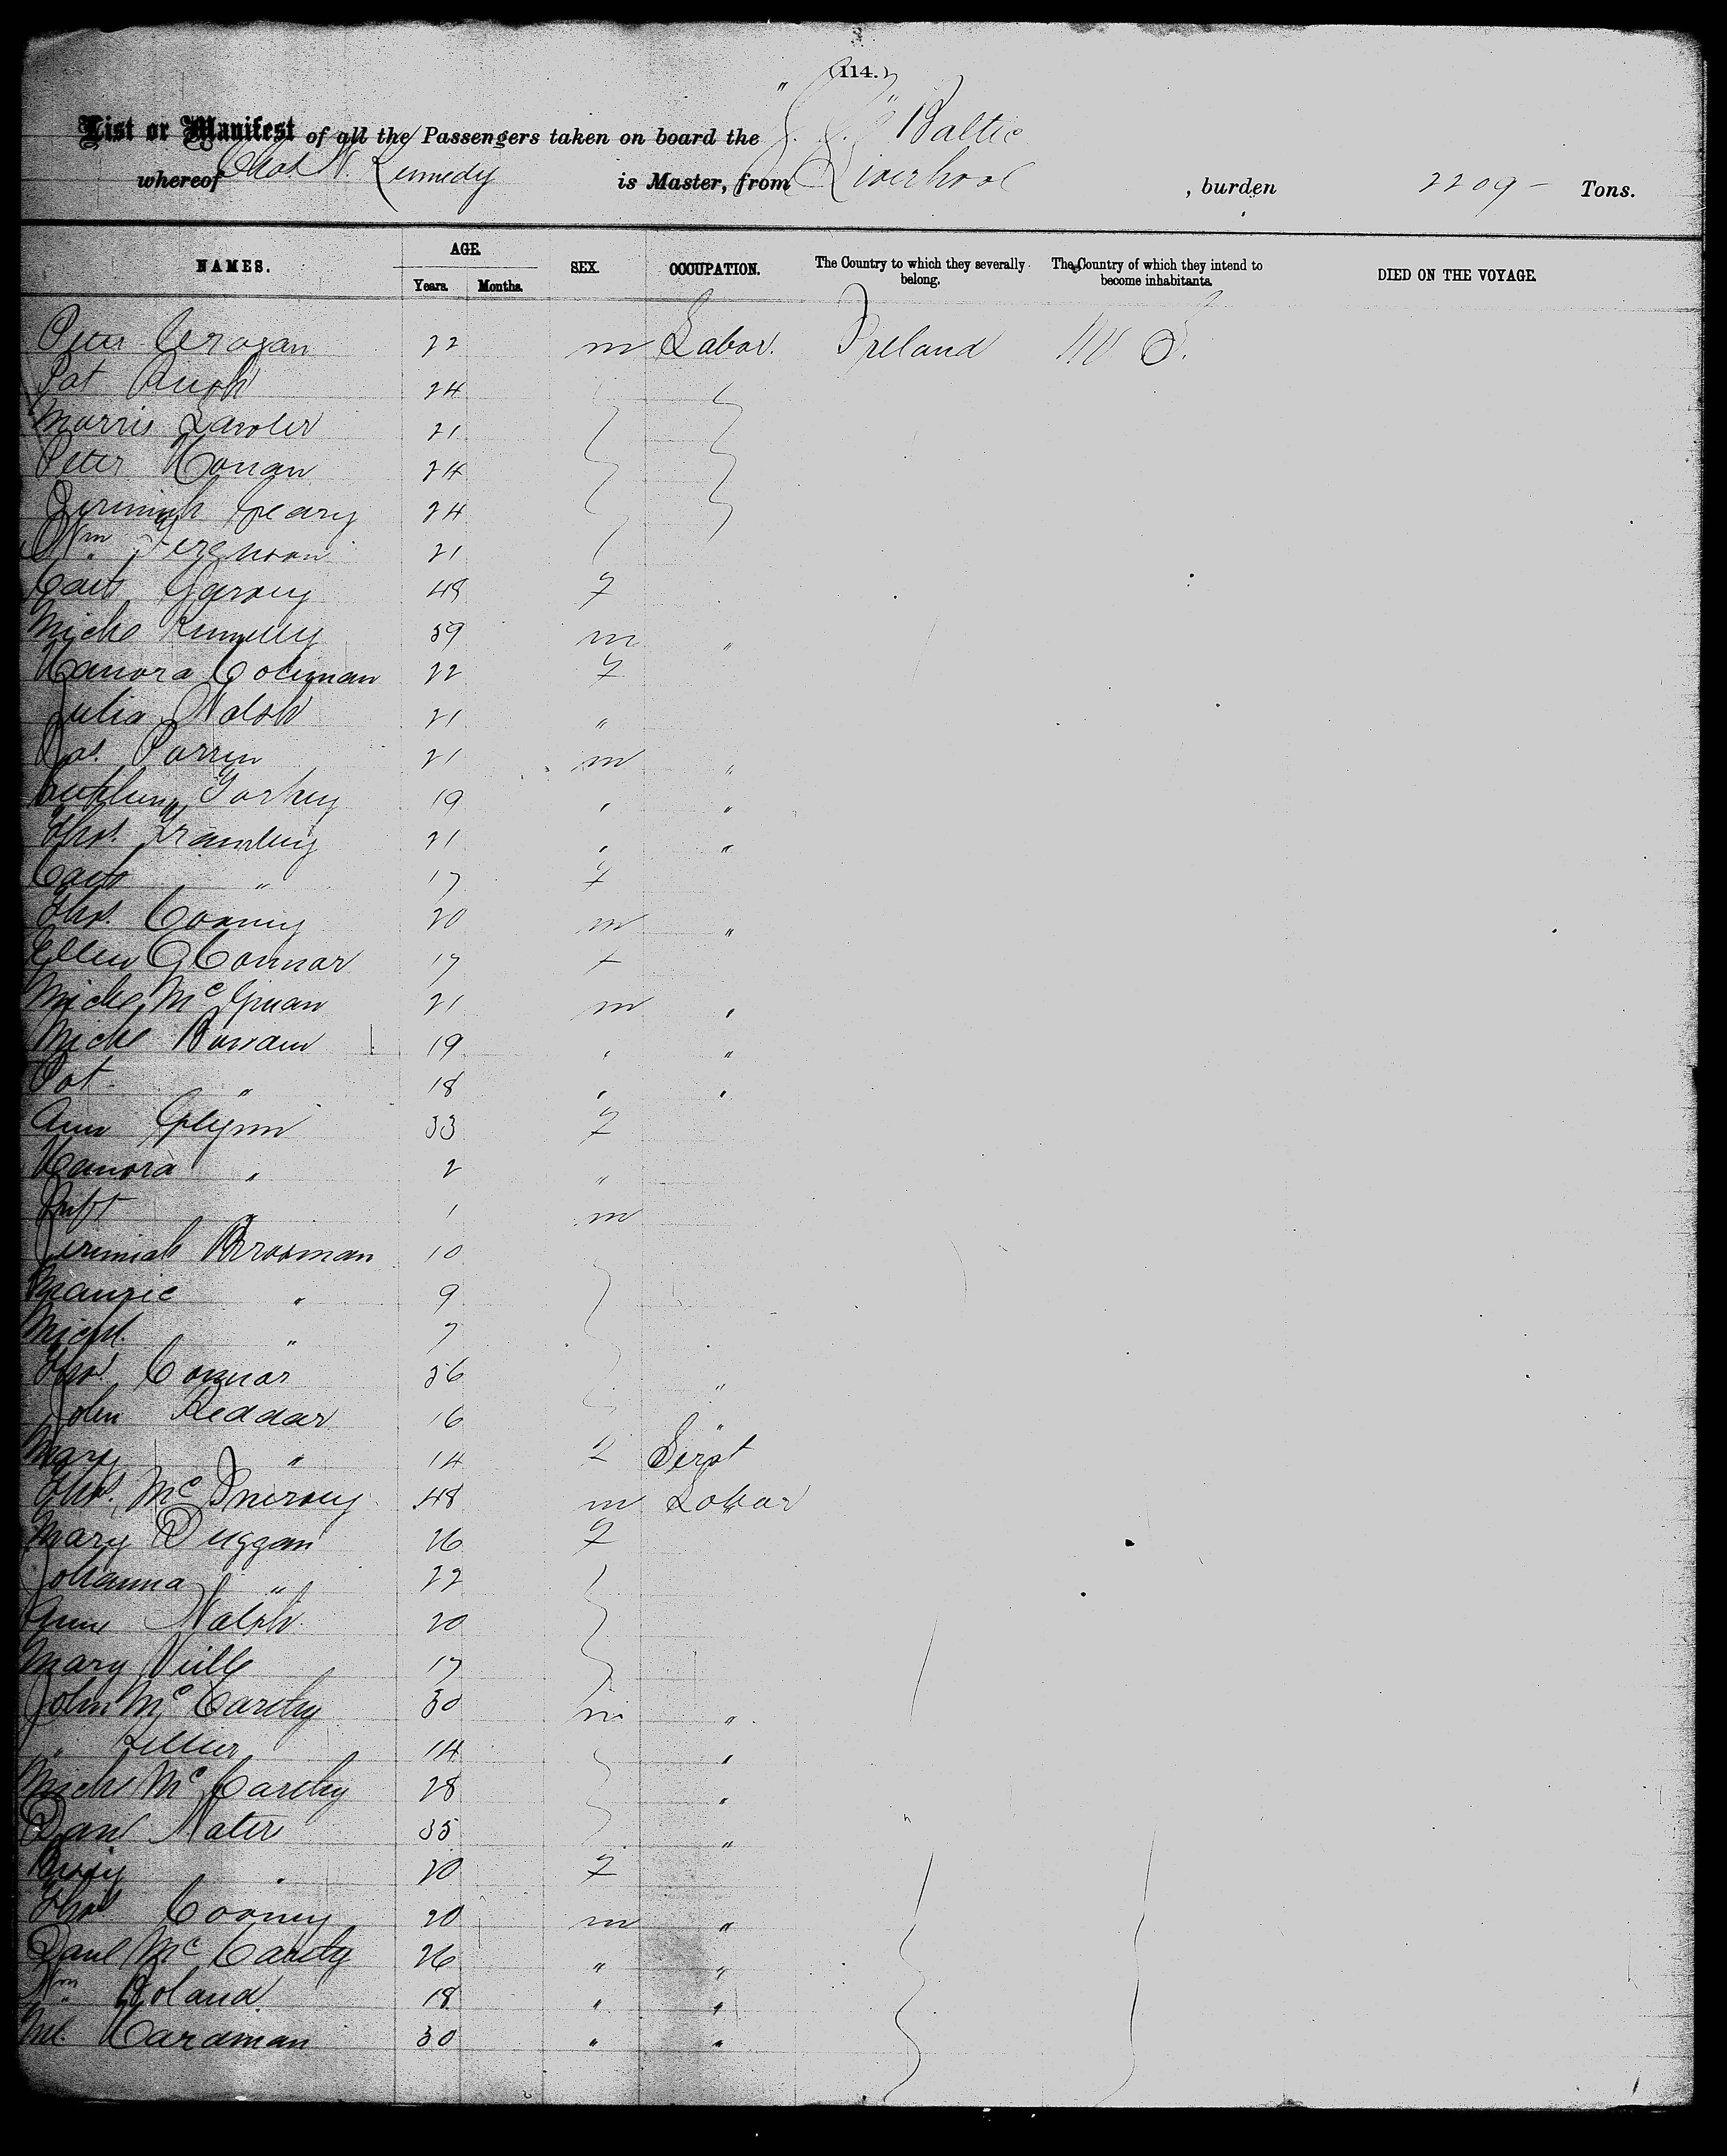 (114.)
List or Manifest of all the Passengers taken on board the "S. S." Baltic
whereof Chas W. Kennedy is Master, from Liverpool , burden 2209 - Tons.
NAMES. AGE. SEX. OCCUPATION. The Country to which they severally belong. The Country of which they intend to become inhabitants. DIED ON THE VOYAGE.
Years. Months.
Peter Cragan 22 m Labor. Ireland U S.
Pat 24
Morris Lawler 21
Peter Honan 24
Jeremiah Geary 24
Wm Ferguson 21
Cath Garvey 48 f
Michl 59 m "
Hanora Coleman 22 f
Julia Walsh 21 "
Jas. Parren 21 m "
19 " "
Thos. 21 " "
Cath " 17 f
Thos. Cooney 20 m "
Ellen O Connor 17 f
Michl Mc 21 m "
Michl 19 " "
Pat " 18 " "
Ann Glynn 33 f
Hanora " 2 "
Inft " 1 m
Jeremiah Brosman 10
Maurice " 9
Michl. " 7
Thos Connor 56 "
John Reddar 16 "
Mary " 14 f Servt
Thos. Mc Inerney 48 m Labor
Mary Duggan 26 f
Johanna " 22
Anne Walsh 20
Mary 17
John Mc Carthy 30 m "
" 14 "
Michl Mc Carthy 28 "
Danl Water 35 "
" 20 f
Thos Cooney 20 m "
Danl Mc Carthy 26 " "
Wm Boland 18 " "
Ml. Hardman 30 " "